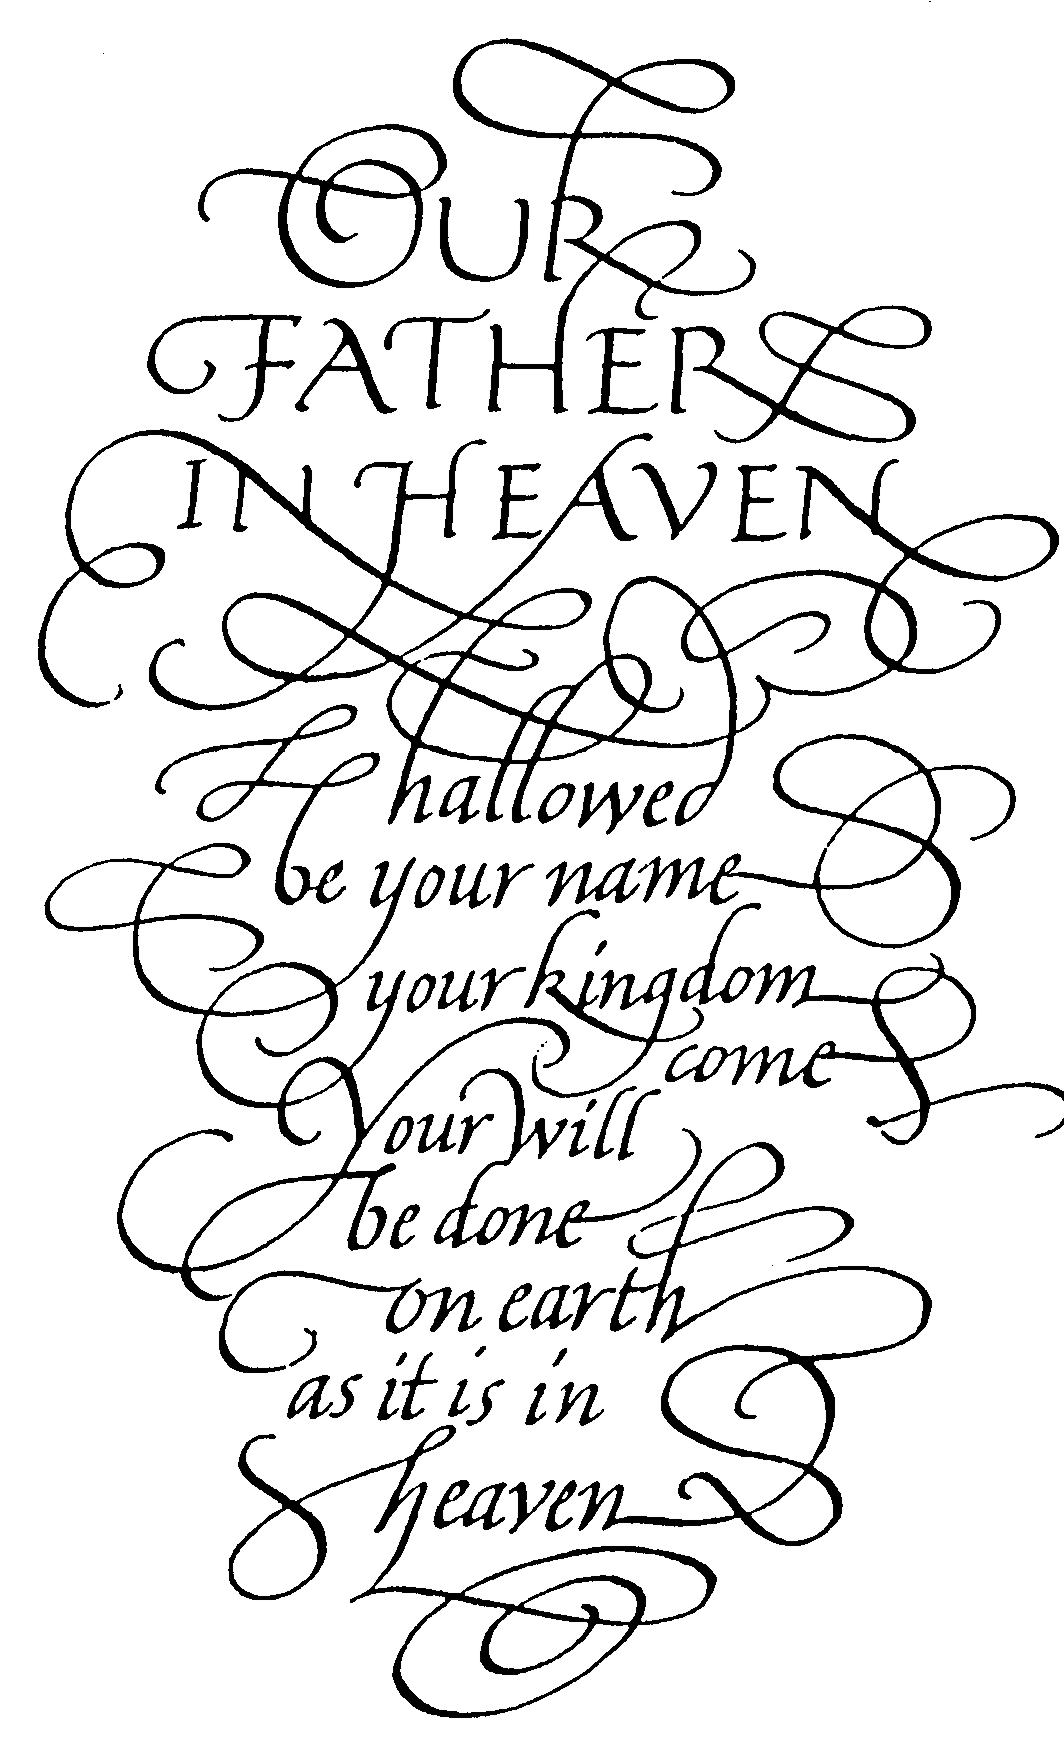 OUR
FATHER
IN HEAVEN
hallowed
be your name
your kingdom
come
Your will
be done
on earth
as it is in
heaven